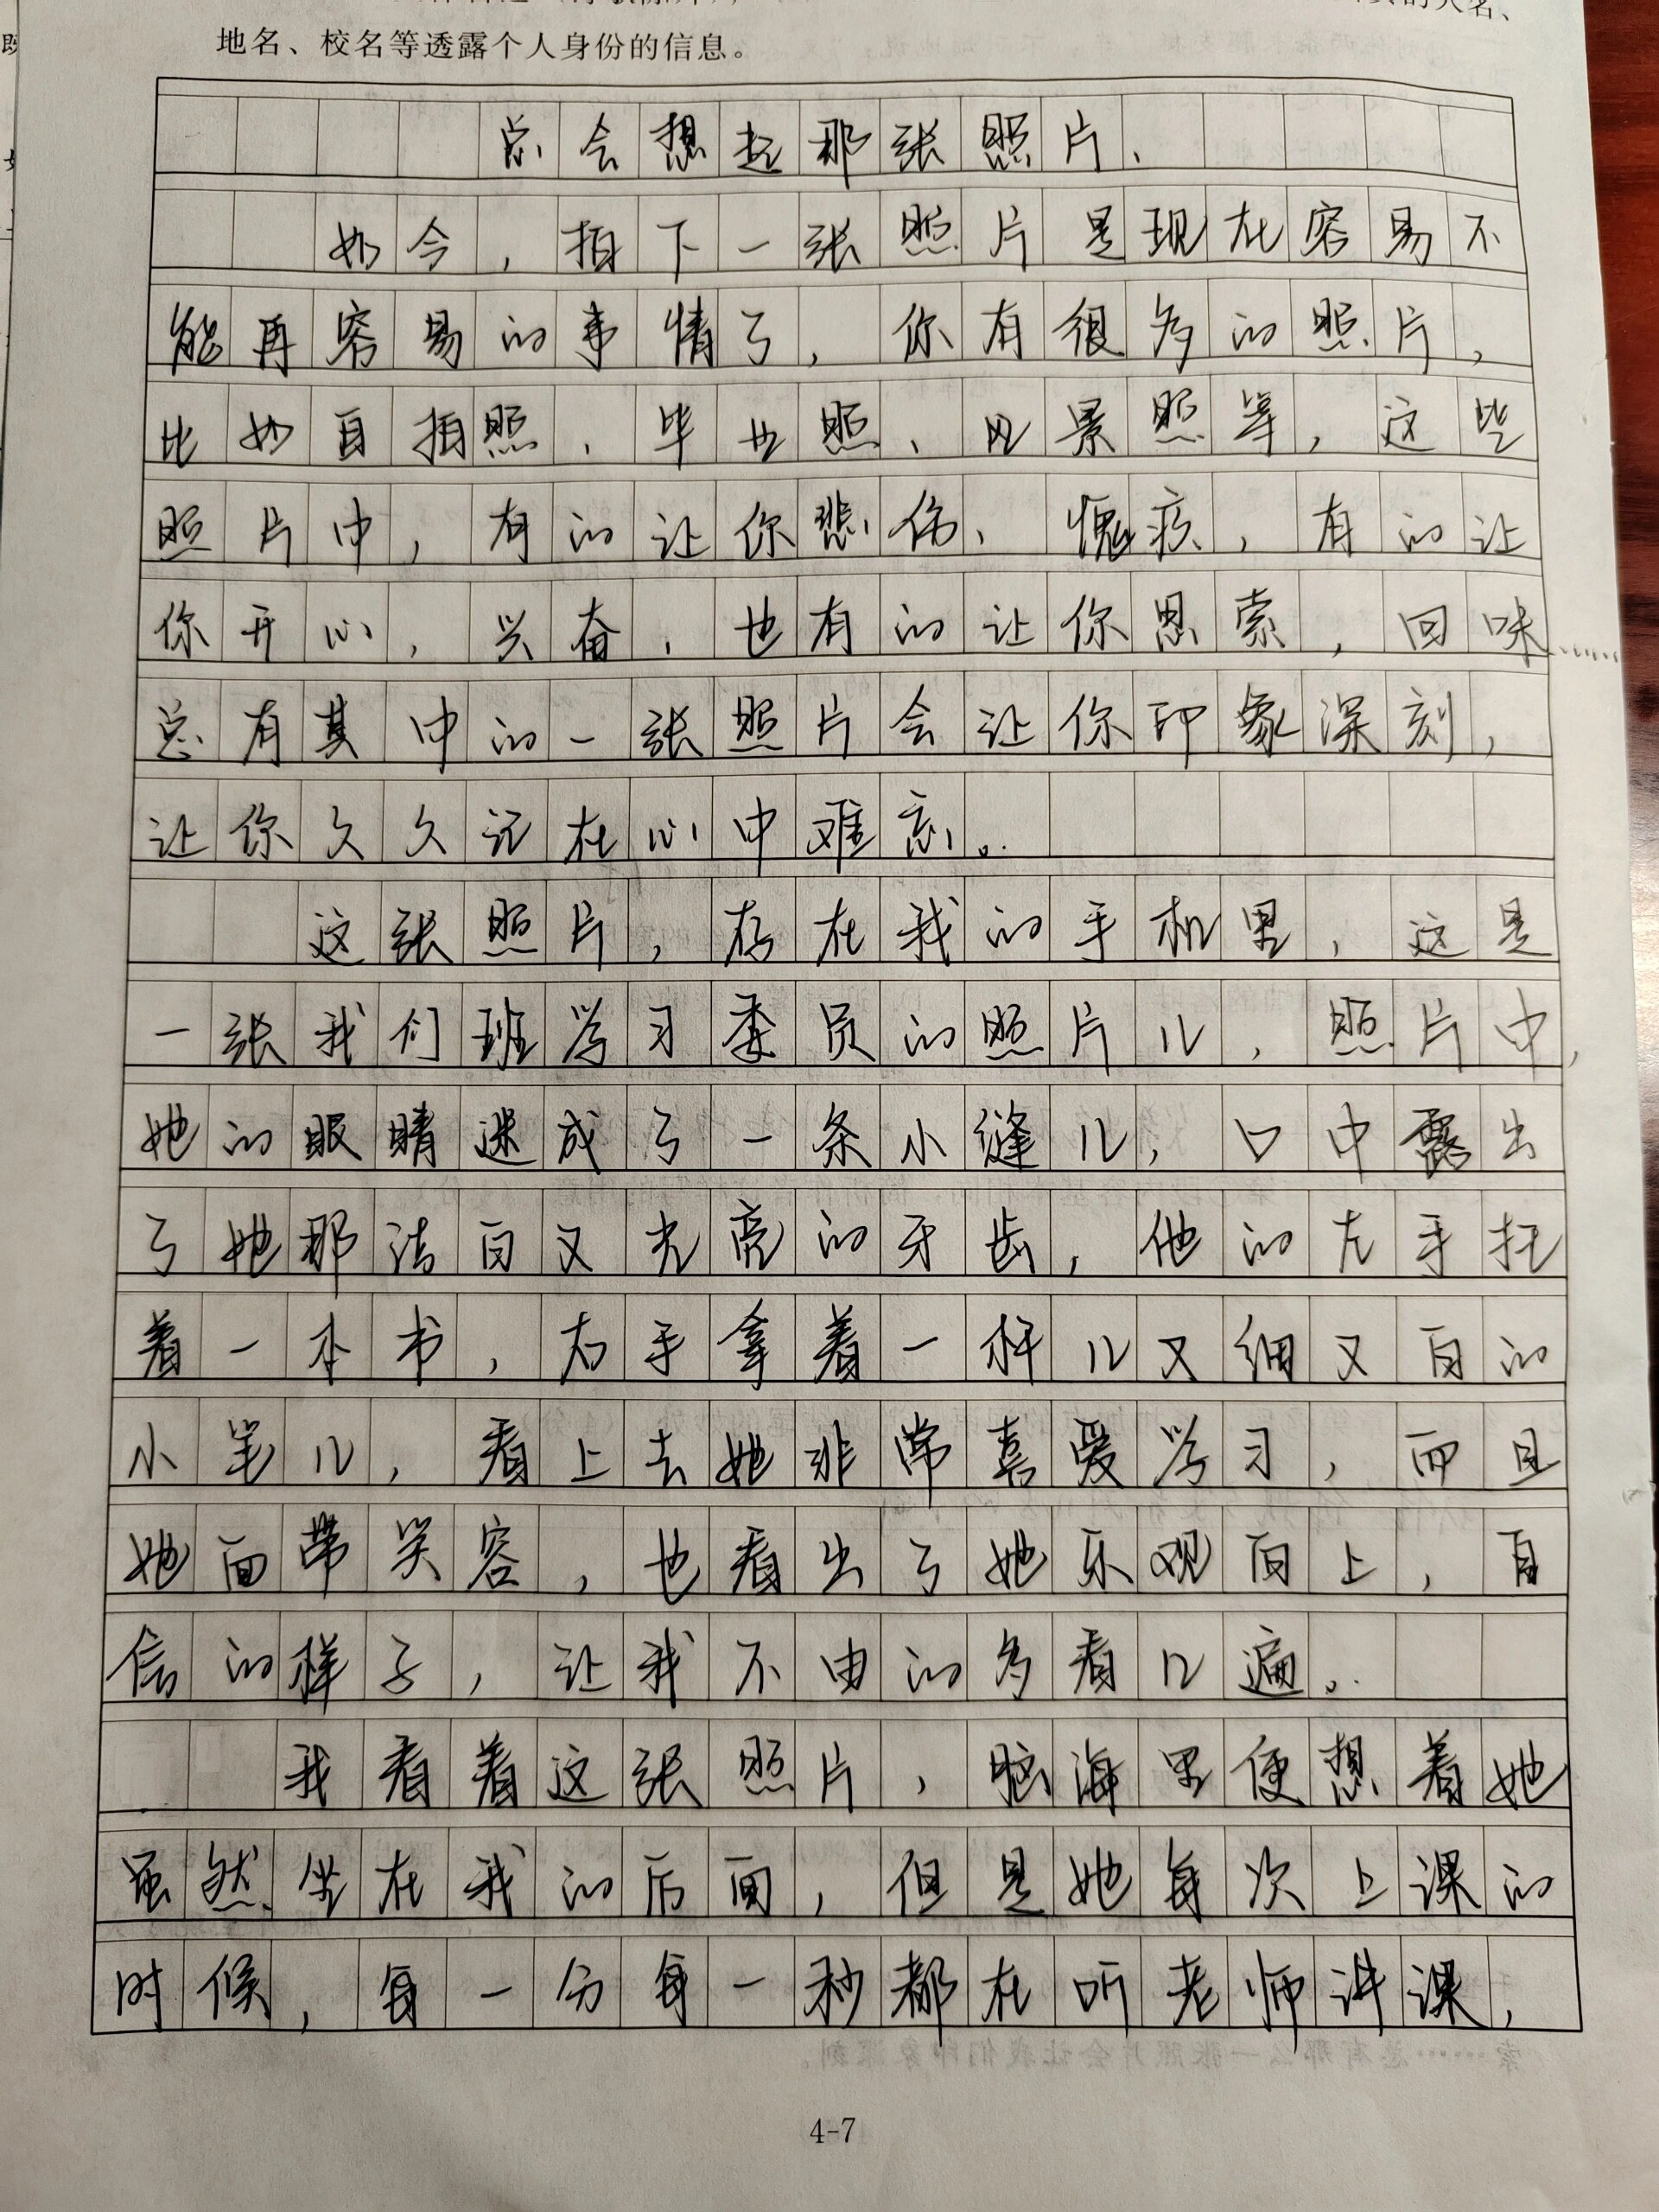 地名、校名等透露个人身份的信息。
总会想起那张照片、
如今，拍下一张照片是现在容易不
能再容易的事情了，你有很多的照片，
比如自拍照、毕业照、风景照等，这些
照片中，有的让你悲伤、愧疚，有的让
你开心，兴奋，也有的让你思索，回味……
总有其中的一张照片会让你印象深刻，
让你久久记在心中难忘。
这张照片，存在我的手机里，这是
一张我们班学习委员的照片儿，照片中，
她的眼睛迷成了一条小缝儿，口中露出
了她那洁白又光亮的牙齿，他的左手托
着一本书，右手拿着一杆儿又细又白的
小笔儿，看上去她非常喜爱学习，而且
她面带笑容，也看出了她乐观向上，自
信的样子，让我不由的多看几遍。
我看着这张照片，脑海里便想着她
虽然坐在我的后面，但是她每次上课的
时候，每一分每一秒都在听老师讲课，
4-7